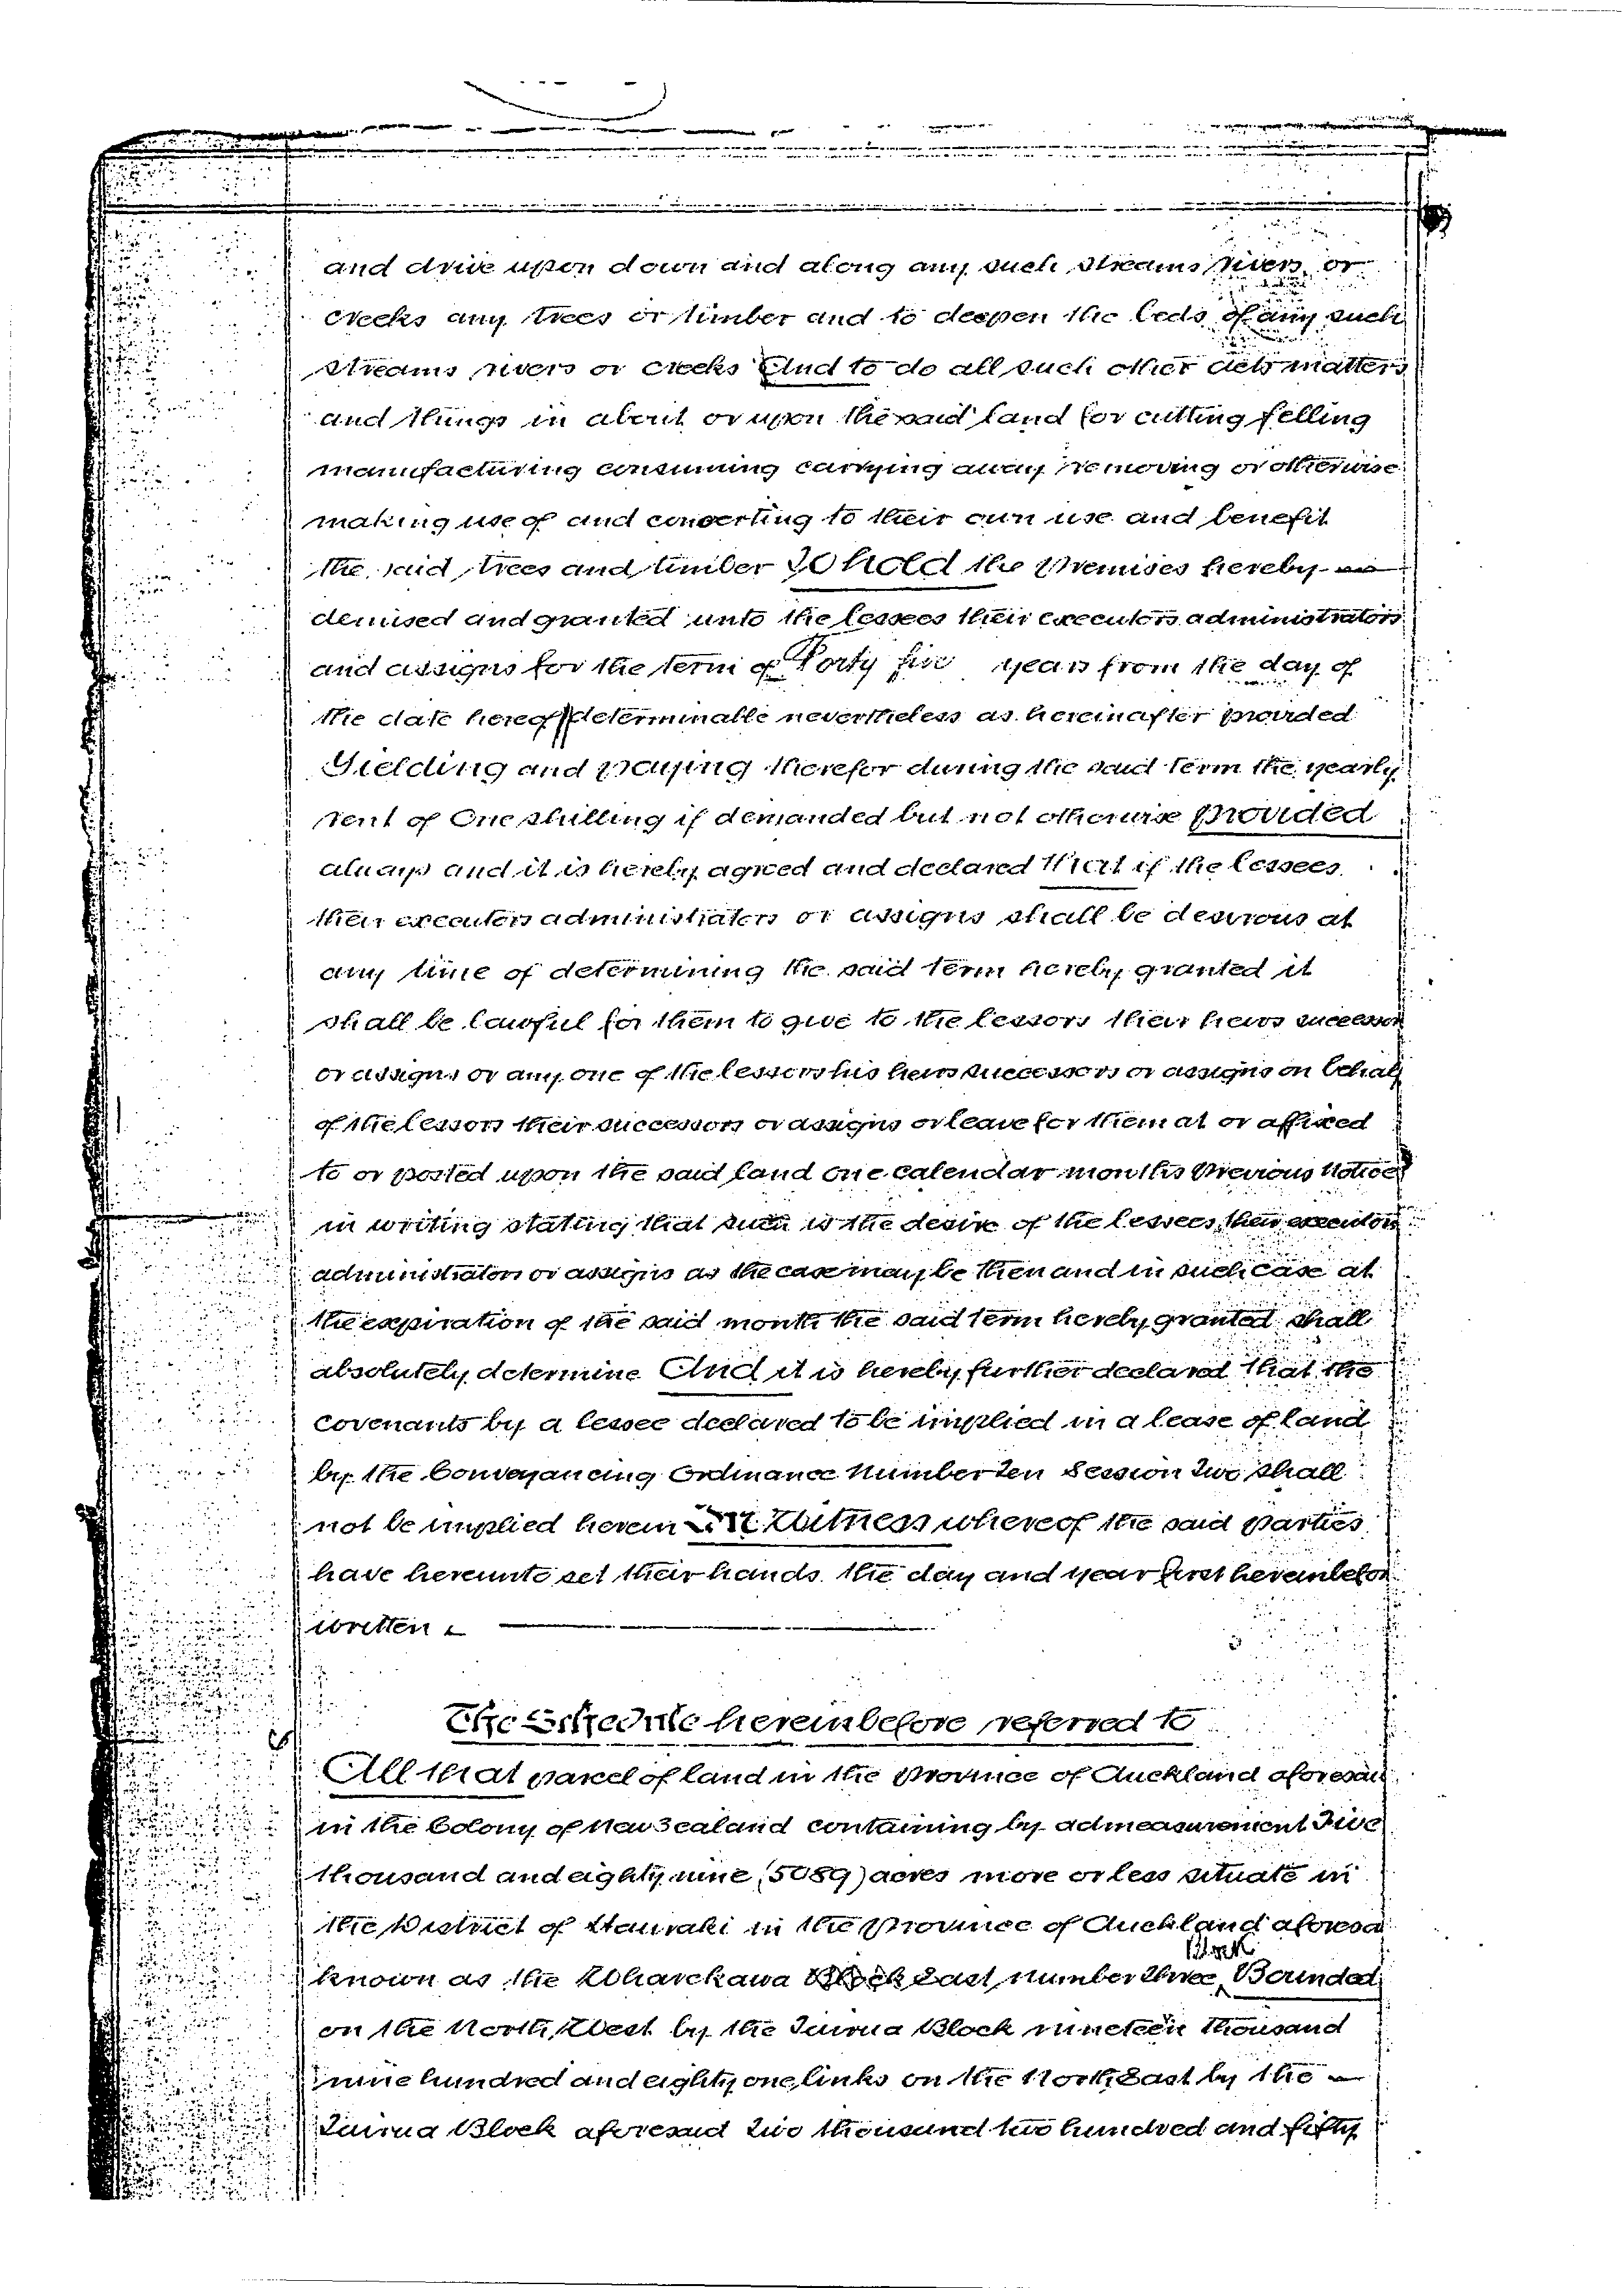 and drive upon down and along any such streams rivers or
creeks any trees or timber and to deepen the beds of any such
streams rivers or creeks And to do all such other acts matters
and things in about or upon the said land for cutting felling
manufacturing consuming carrying away removing or otherwise
making use of and converting to their own use and benefit
the said trees and timber To hold the premises hereby
demised and granted unto the lessees their executors administrators
and assigns for the term of Forty five years from the day of
the date hereof determinable nevertheless as hereinafter provided
Yielding and paying therefor during the said term the yearly
rent of One shilling if demanded but not otherwise Provided
always and it is hereby agreed and declared that if the lessees
their executors administrators or assigns shall be desirous at
any time of determining the said term hereby granted it
shall be lawful for them to give to the lessors their heirs successors
or assigns or any one of the lessors his heirs successors or assigns on behalf
of the lessors their successors or assigns or leave for them at or affixed
to or posted upon the said land one calendar months previous Notice
in writing stating that such is the desire of the lessees their executors
administrators or assigns as the case may be then and in such case at
the expiration of the said month the said term hereby granted shall
absolutely determine And it is hereby further declared that the
covenants by a lessee declared to be implied in a lease of land
by the Conveyancing Ordinance Number Ten Session Two shall
not be implied herein In Witness whereof the said parties
have hereunto set their hands the day and year first hereinbefore
written
The Schedule hereinbefore referred to
All that parcel of land in the Province of Auckland aforesaid
in the Colony of New Zealand containing by admeasurement Five
thousand and eighty nine (5089) acres more or less situate in
the District of Hauraki in the Province of Auckland aforesa
Block
known as the Wharekawa Block East number three Bounded
on the North West by the Tairua Block nineteen thousand
nine hundred and eighty one links on the North East by the
Tairua Block aforesaid two thousand two hundred and fifty